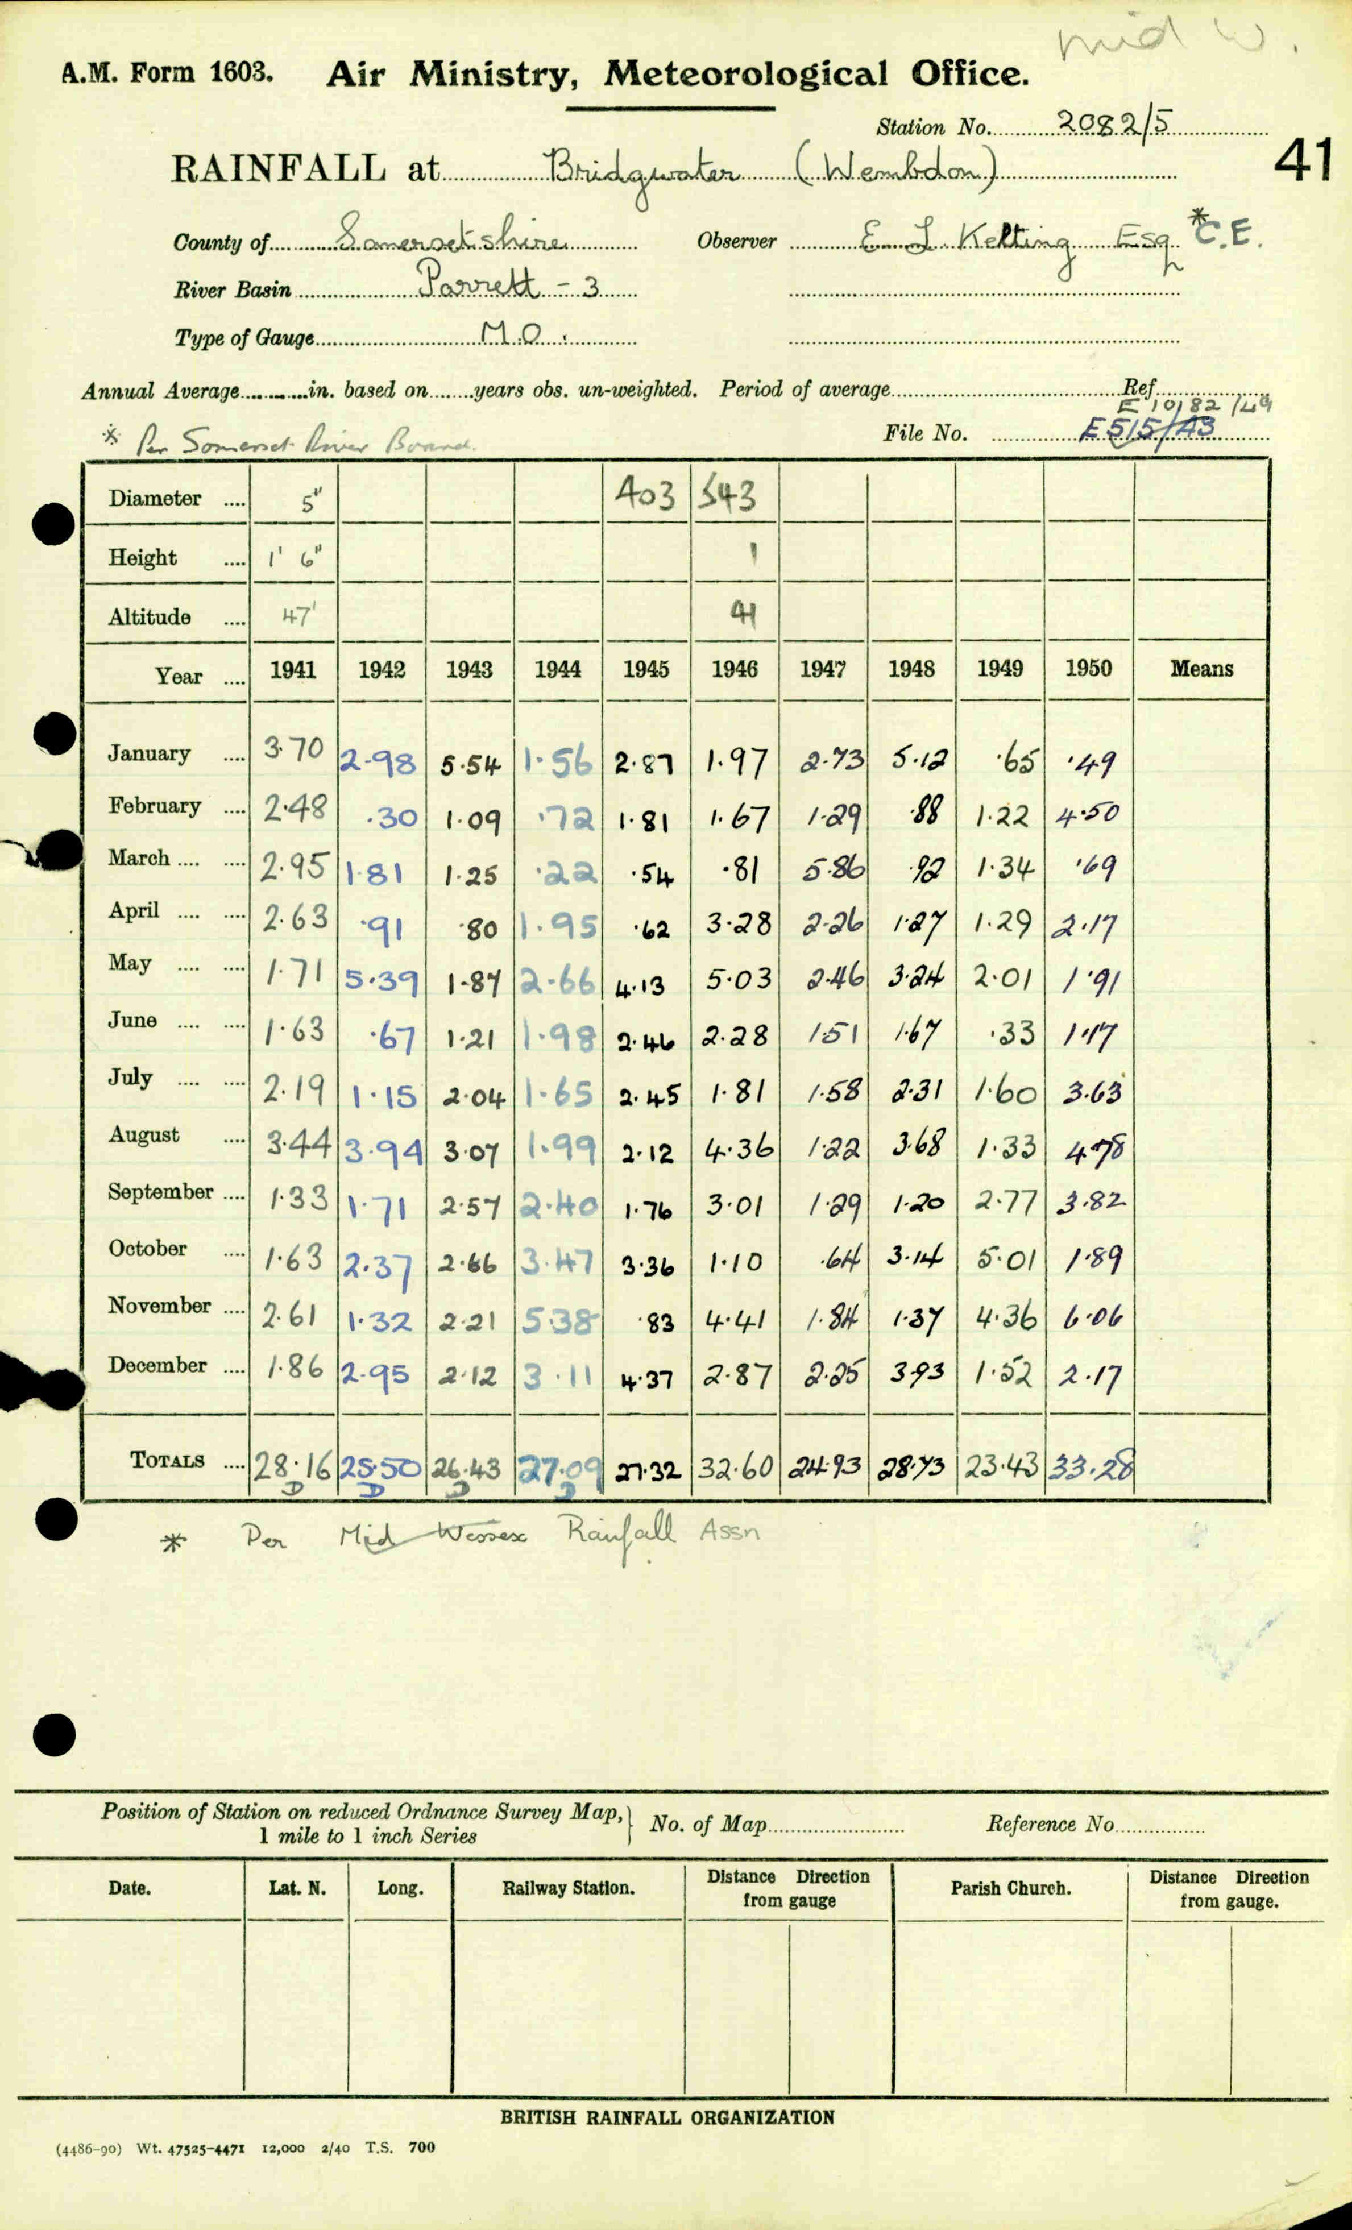 mid W.
A.M. Form 1603. Air Ministry, Meteorological Office.
Station No. 2082/5
41
RAINFALL at Bridgwater (Wembdon)
County of Somersetshire Observer E L Kelting Esq *C.E.
River Basin Parrett - 3
Type of Gauge M.O.
Annual Average in. based on years obs. un-weighted. Period of average Ref.
E 10182/49
* Per Somerset River Board. File No. E515/43
Diameter 5" 403 543
Height 1' 6" 1
Altitude 47' 41
Year 1941 1942 1943 1944 1945 1946 1947 1948 1949 1950 Means
January 3.70 2.98 5.54 1.56 2.87 1.97 2.73 5.12 .65 .49
February 2.48 .30 1.09 .72 1.81 1.67 1.29 .88 1.22 4.50
March 2.95 1.81 1.25 .22 .54 .81 5.86 .92 1.34 .69
April 2.63 .91 .80 1.95 .62 3.28 2.26 1.27 1.29 2.17
May 1.71 5.39 1.87 2.66 4.13 5.03 2.46 3.24 2.01 1.91
June 1.63 .67 1.21 1.98 2.46 2.28 1.51 1.67 .33 1.17
July 2.19 1.15 2.04 1.65 2.45 1.81 1.58 2.31 1.60 3.63
August 3.44 3.94 3.07 1.99 2.12 4.36 1.22 3.68 1.33 4.78
September 1.33 1.71 2.57 2.40 1.76 3.01 1.29 1.20 2.77 3.82
October 1.63 2.37 2.66 3.47 3.36 1.10 .64 3.14 5.01 1.89
November 2.61 1.32 2.21 5.38 .83 4.41 1.84 1.37 4.36 6.06
December 1.86 2.95 2.12 3.11 4.37 2.87 2.25 3.93 1.52 2.17
TOTALS 28.16 25.50 26.43 27.09 27.32 32.60 24.93 28.73 23.43 33.28
D D D D
* Per Mid Wessex Rainfall Assn
Position of Station on reduced Ordnance Survey Map, 1 mile to 1 inch Series } No. of Map Reference No
Date. Lat. N. Long. Railway Station. Distance Direction from gauge Parish Church. Distance Direction from gauge.
BRITISH RAINFALL ORGANIZATION
(4486-90) Wt. 47525-4471 12,000 2/40 T.S. 700